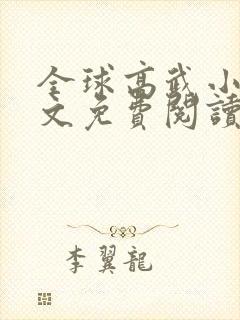 全球高武小
文免費閱讀
李翼龍